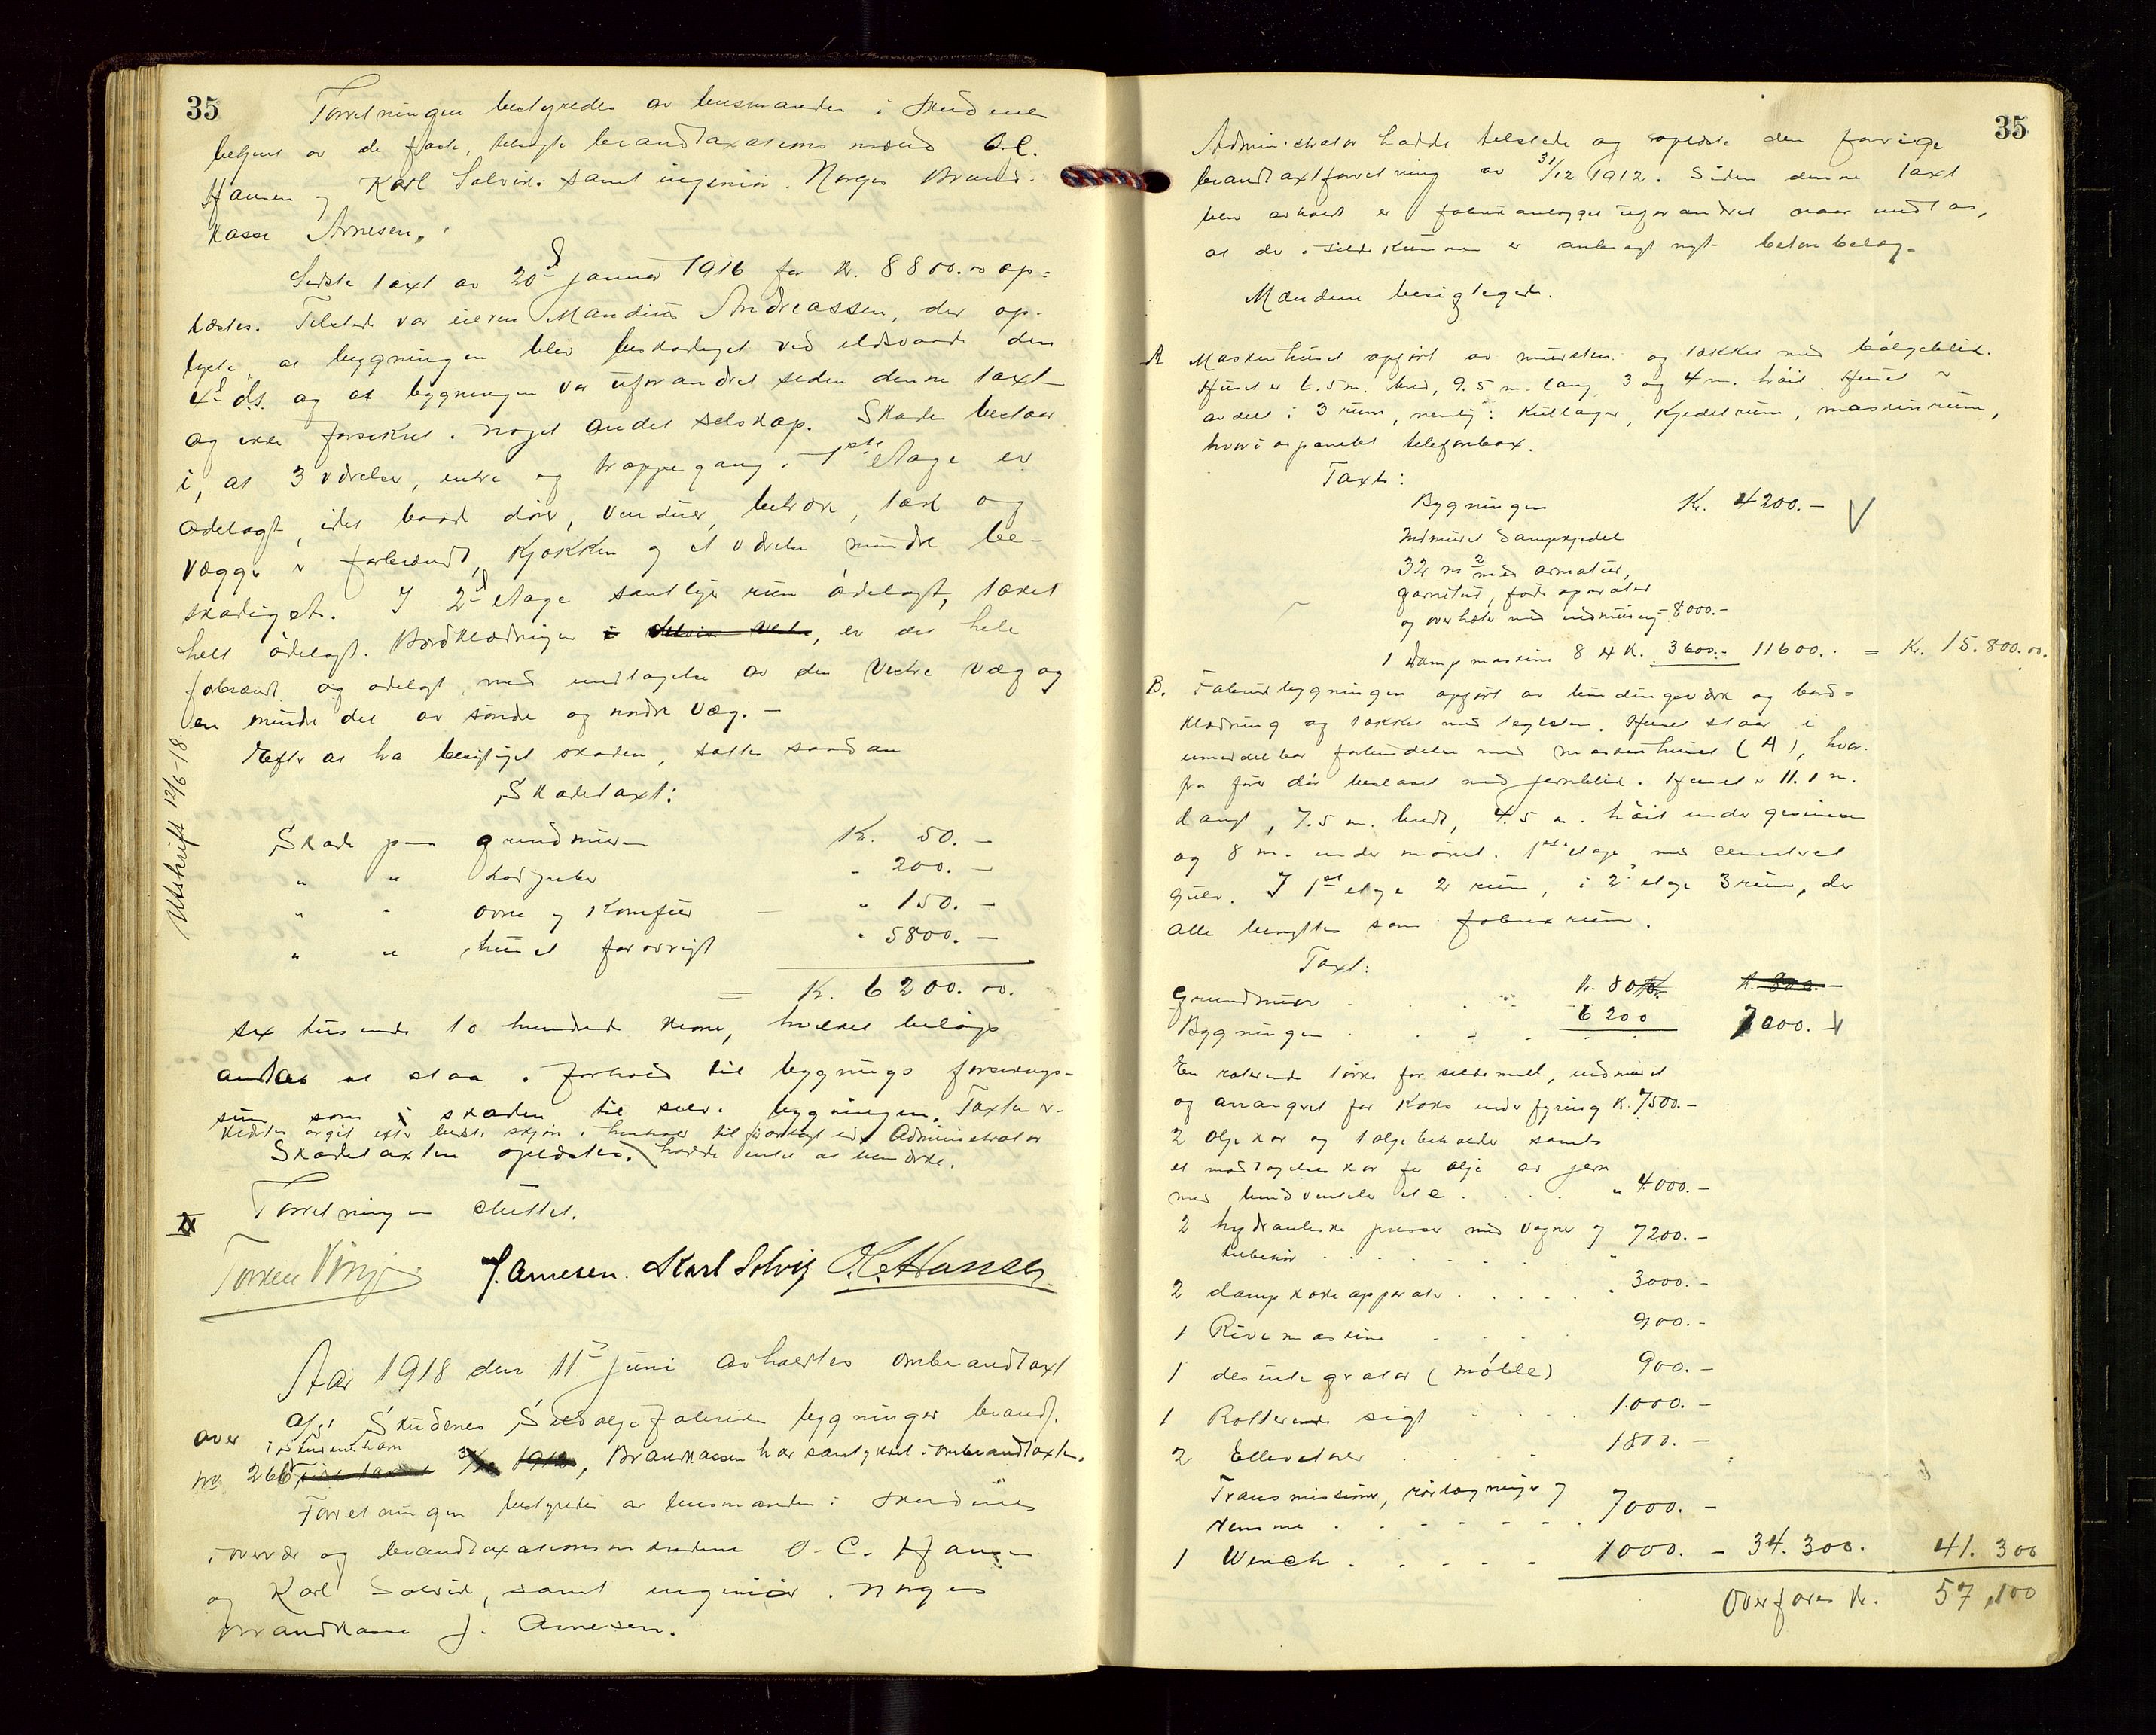 35
Forretningen bestyredes av lensmanden i Skudenes
betjent av de faste, edsvorne brandtaxations mænd O.C.
Hansen og Karl Solvik samt ingeniør i Norges Brand-
kasse Arnesen.
Sidste taxt av 20d januar 1916 for kr. 8800.00 op-
læstes. Tilstede var eieren Mandius Andreassen, der op-
lyste, at bygningen blev beskadiget ved ildsvaade den
4d ds. og at bygningen var uforandret siden denne taxt
og ikke forsikret i noget andet selskap. Skaden bestaar
i, at 3 værelser, entre og trappegang i 1ste etage er
ødelagt, idet baade dører, vinduer, betræk, tak og
vægge er forbrændt, kjøkken og et værelse mindre be-
skadiget. I 2d etage samtlige rum ødelagt, taket
helt ødelagt. Bordklædningen er det hele
forbrændt og ødelagt, med undtagelse av den vestre væg og
en mindre del av søndre og nordre væg. -
Efter at ha besigtiget skaden, sattes saadan
Skadetaxt:
Skade paa grundmuren Kr. 50. -
" " lodpiper - 200. -
" " ovne og komfur - " 150. -
" " huset forøvrigt " 5800. -
= Kr. 6200.00.
sex tusende to hundrede kroner, hvilket beløp
antas at staa i forhold til bygnings forsikrings-
sum som skaden til selve bygningen. Taxten er
avgit efter bedste skjøn i henhold til avlagt ed. Administrator
Skadetaxten oplæstes. hadde intet at bemerke.
Forretningen sluttet.
J. Arnesen. Karl Solvig O.C. Hansen
Utskrift 12/6-18.
Aar 1918 den 11d juni avholdtes ombrandtaxt
over A/S Skudenes Sildoljefabriks bygninger brandt.
i Skudeneshavn
no 266, Brandkassen har samtykket i ombrandtaxten.
Forretningen bestyredes av lensmanden i Skudenes
i overvær og brandtaxationsmændene O. C. Hansen
og Karl Solvik, samt ingeniør i Norges
Brandkasse J. Arnesen.
35
Administrator hadde tilstede og oplæste den forrige
brandtaxtforretning av 31/12 1912. Siden denne taxt
blev avholdt er fabrikanlægget uforandret naar undtas,
at der i sildekummen er anbragt nyt betonbelæg.
Mændene besigtiget.
A Maskinhuset opført av mursten og tækket med bølgeblik.
Huset er 6.5 m. bred, 9.5 m. lang 3 og 4 m. høit. Huset er
avdelt i 3 rum, nemlig: Kullager, kjedelrum, maskinrum,
hvori oppanelet telefonbox.
Taxt:
Bygningen Kr. 4200. - V
Indmuret Dampkjedel
32 m2 med armatur,
garnitur, føde aparater
og overheter med indmuring - 8000. -
1 dampmaskine 8 H.K. 3600. - 11600. = K. 15.800.00.
B. Fabrikbygningen opført av bindingsverk og bord-
klædning og tækket med teglsten. Huset staar i
umiddelbar forbindelse med maskinhuset (A), hvor-
fra fører dør beslaaet med jernblik. Huset er 11.1 m.
langt, 7.5 m. bredt, 4.5 m. høit under gesimsen
og 8 m. under mønet. 1ste etage med cementeret
gulv. I 1ste etage 2 rum, i 2 etage 3 rum, der
alle benyttes som fabrikrum.
Taxt:
Grundmur . . . . K. 800 K. 800. -
Bygningen . . . . 6200 7000. V
En roterende tørke for sildemel, indmuret
og arrangeret for koks under fyring K. 7500. -
2 oljekar og 1 oljebeholder samt
et modtagelseskar for olje av jern
med bundventiler etc . . . . " 4000. -
2 hydrauliske presser med vogner og 7200. -
tilbehør . . . . . . "
2 dampkokeapparater . . . . . " 3000. -
1 Rivemaskine . . . 900. -
1 desintegrator (mølle) 900. -
1 Rotterende sigt . . . 1000. -
2 Ellevatorer . . . . 1800. -
Transmissioner, rørlægninger og
remme . . . . . . . 7000. -
1 Winch . . . . . 1000. - 34.300. 41.300
Overføres Kr. 57,100